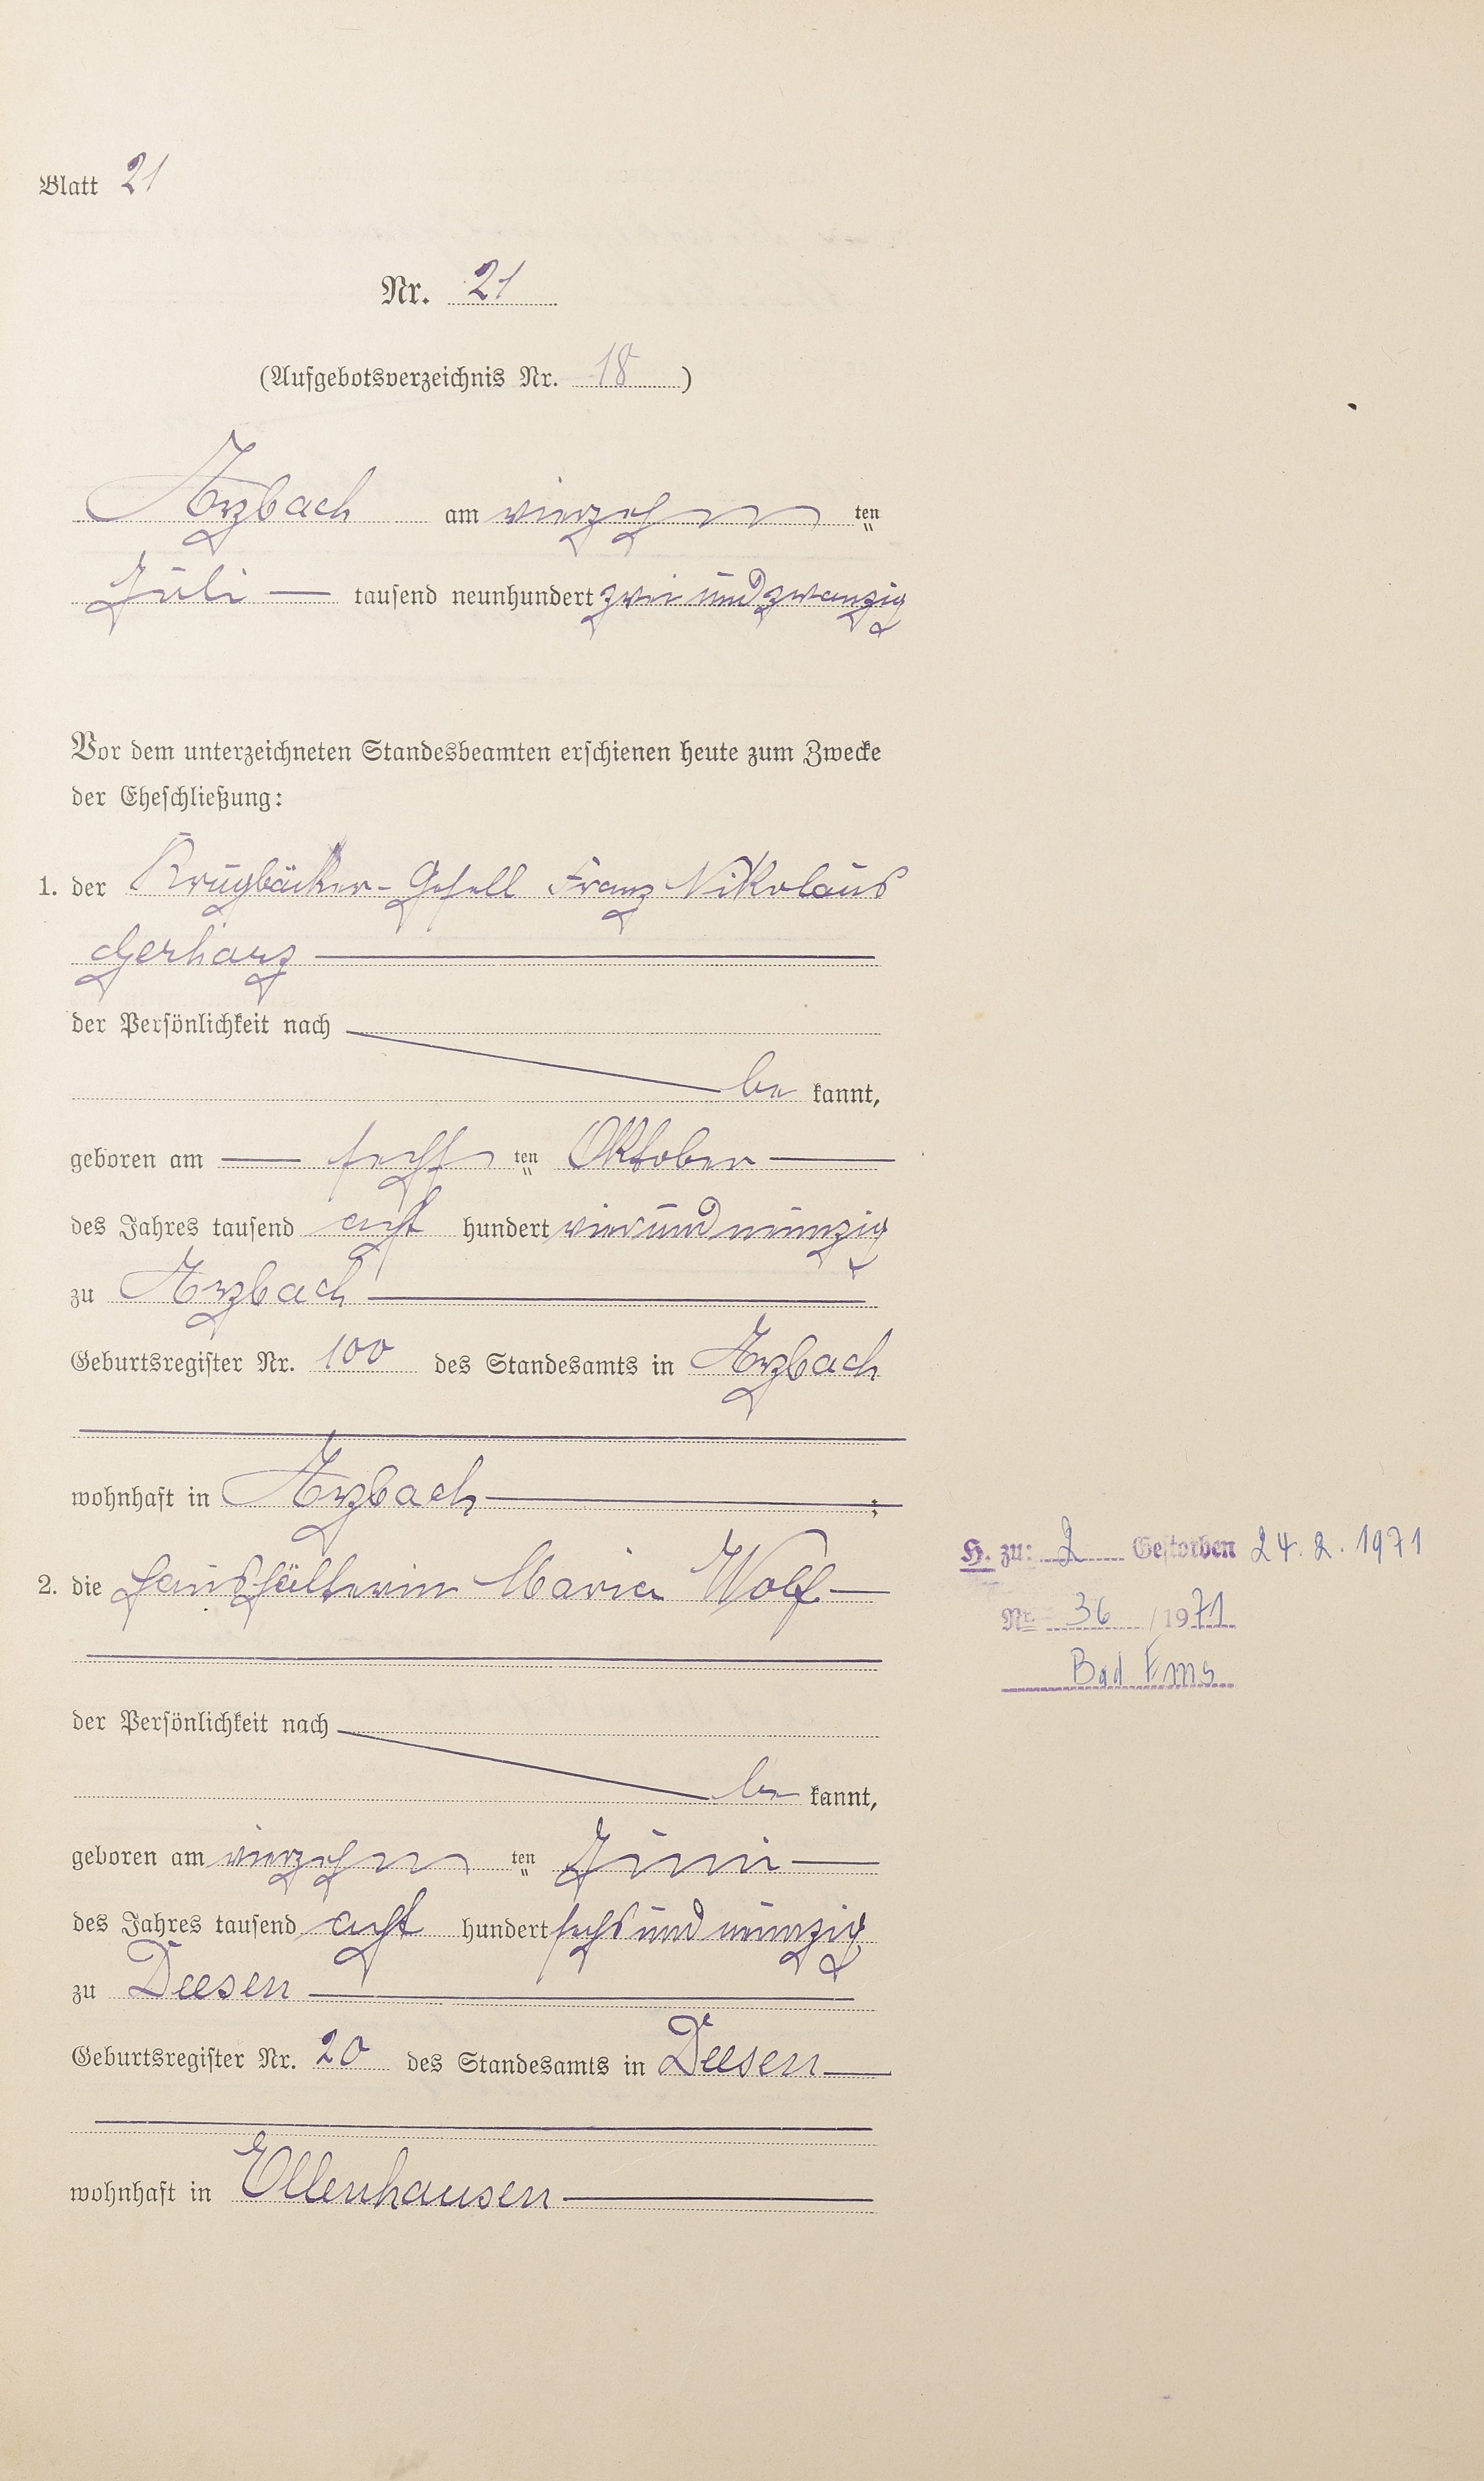 Blatt 21
Nr. 21
(Aufgebotsverzeichnis Nr. 18)
Arzbach am vierzehn ten
Juli — tausend neunhundert zwei und zwanzig
Vor dem unterzeichneten Standesbeamten erschienen heute zum Zwecke
der Eheschließung:
1. der Krugbäcker-Gesell Franz Nikolaus
Gerharz
der Persönlichkeit nach
be kannt,
geboren am — sechs ten Oktober —
des Jahres tausend acht hundert vierundneunzig
zu Arzbach
Geburtsregister Nr. 100 des Standesamts in Arzbach
wohnhaft in Arzbach ;
2. die Haushälterin Maria Wolf
der Persönlichkeit nach
be kannt,
geboren am vierzehn ten Juni —
des Jahres tausend acht hundert sechs und neunzig
zu Deesen
Geburtsregister Nr. 20 des Standesamts in Deesen
wohnhaft in Ellenhausen
H. zu: 2 Gestorben 24.2.1971
Nr. 36 / 1971
Bad Ems